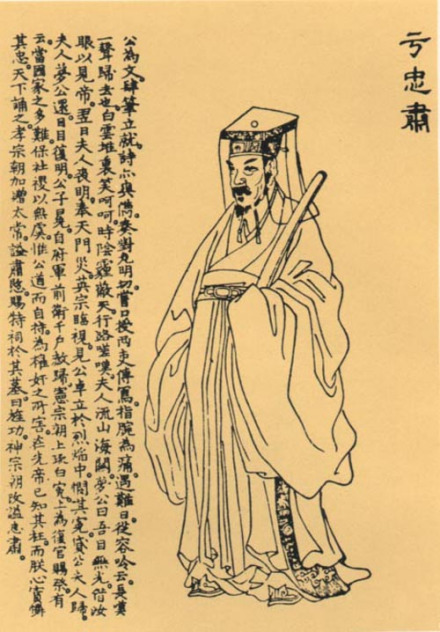 于忠肅
公為文肆筆立就詩亦典儁奏對尤明切嘗口授兩吏傳寫指腕為痛遇難日從容吟云長嘆
一聲歸去也白雲堆裏笑呵呵時陰霾蔽天行路嗟嘆夫人流山海關夢公曰吾目無光借汝
眼以見帝翌日夫人夜明奉天門災英宗臨視見公卓立於烈焰中憫其寃貸公夫人歸
夫人夢公還目目復明公子冕自府軍前衛千戶赦歸憲宗朝上疏白寃上為復官賜祭有
云當國家之多難保社稷以無虞惟公道而自持為權奸之所害在先帝已知其枉而朕心實憐
其忠天下誦之孝宗朝加贈太常謚肅愍賜特祠於其墓曰旌功神宗朝改謚忠肅